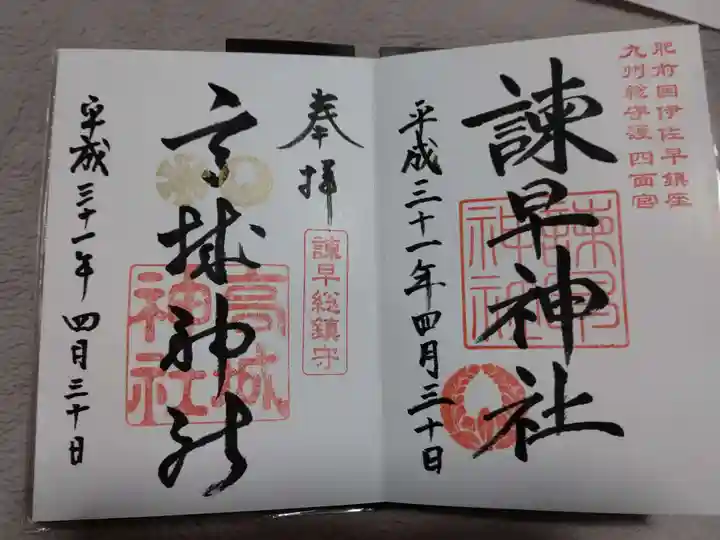 肥前国伊佐早鎮座
九州総守護 四面宮
諫早神社
諫早神社
平成三十一年四月三十日
奉拝
諫早総鎮守
高城神社
高城神社
平成三十一年四月三十日